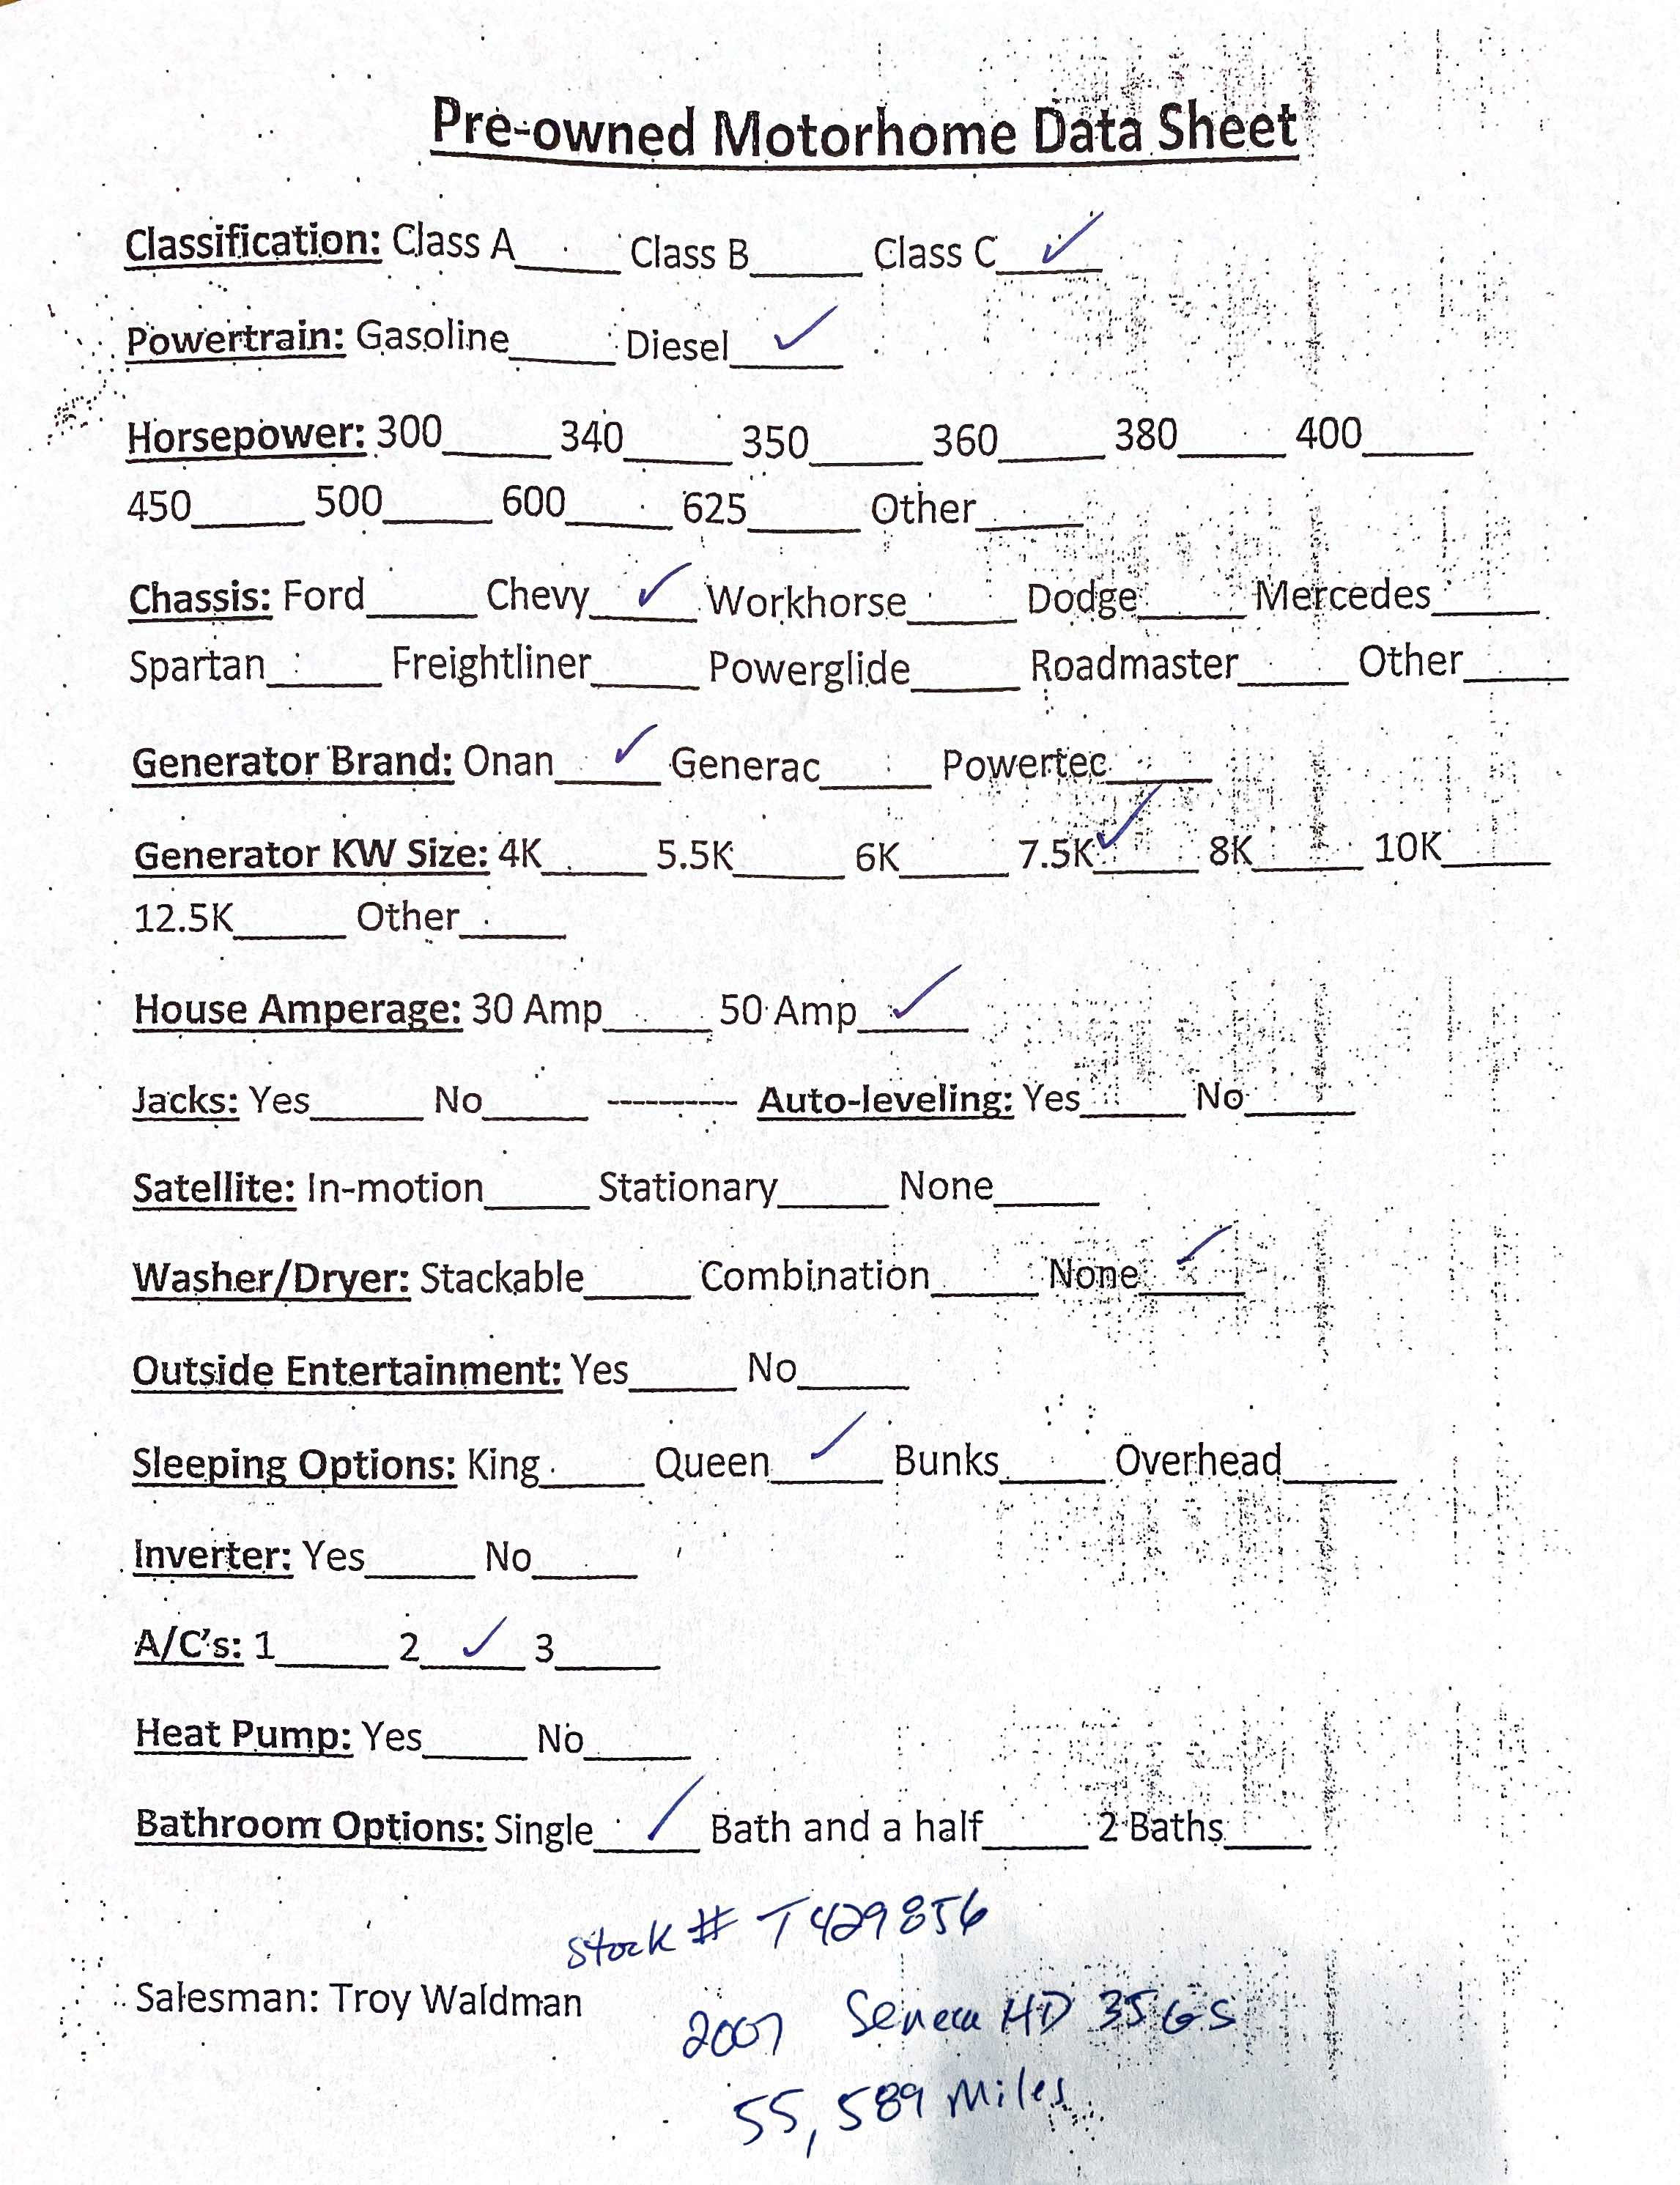 Pre-owned Motorhome Data Sheet
Classification: Class A_____ Class B_____ Class C__✓__
Powertrain: Gasoline_____ Diesel__✓__
Horsepower: 300_____ 340_____ 350_____ 360_____ 380_____ 400_____
450_____ 500_____ 600_____ 625_____ Other_____
Chassis: Ford_____ Chevy__✓__ Workhorse_____ Dodge_____ Mercedes_____
Spartan_____ Freightliner_____ Powerglide_____ Roadmaster_____ Other_____
Generator Brand: Onan__✓__ Generac_____ Powertec_____
Generator KW Size: 4K_____ 5.5K_____ 6K_____ 7.5K__✓__ 8K_____ 10K_____
12.5K_____ Other_____
House Amperage: 30 Amp_____ 50 Amp__✓__
Jacks: Yes_____ No_____ ---------- Auto-leveling: Yes_____ No_____
Satellite: In-motion_____ Stationary_____ None_____
Washer/Dryer: Stackable_____ Combination_____ None__✓__
Outside Entertainment: Yes_____ No_____
Sleeping Options: King_____ Queen__✓__ Bunks_____ Overhead_____
Inverter: Yes_____ No_____
A/C's: 1_____ 2__✓__ 3_____
Heat Pump: Yes_____ No_____
Bathroom Options: Single__✓__ Bath and a half_____ 2 Baths_____
Stock # T429856
Salesman: Troy Waldman
2007 Seneca HD 35GS
55,589 Miles